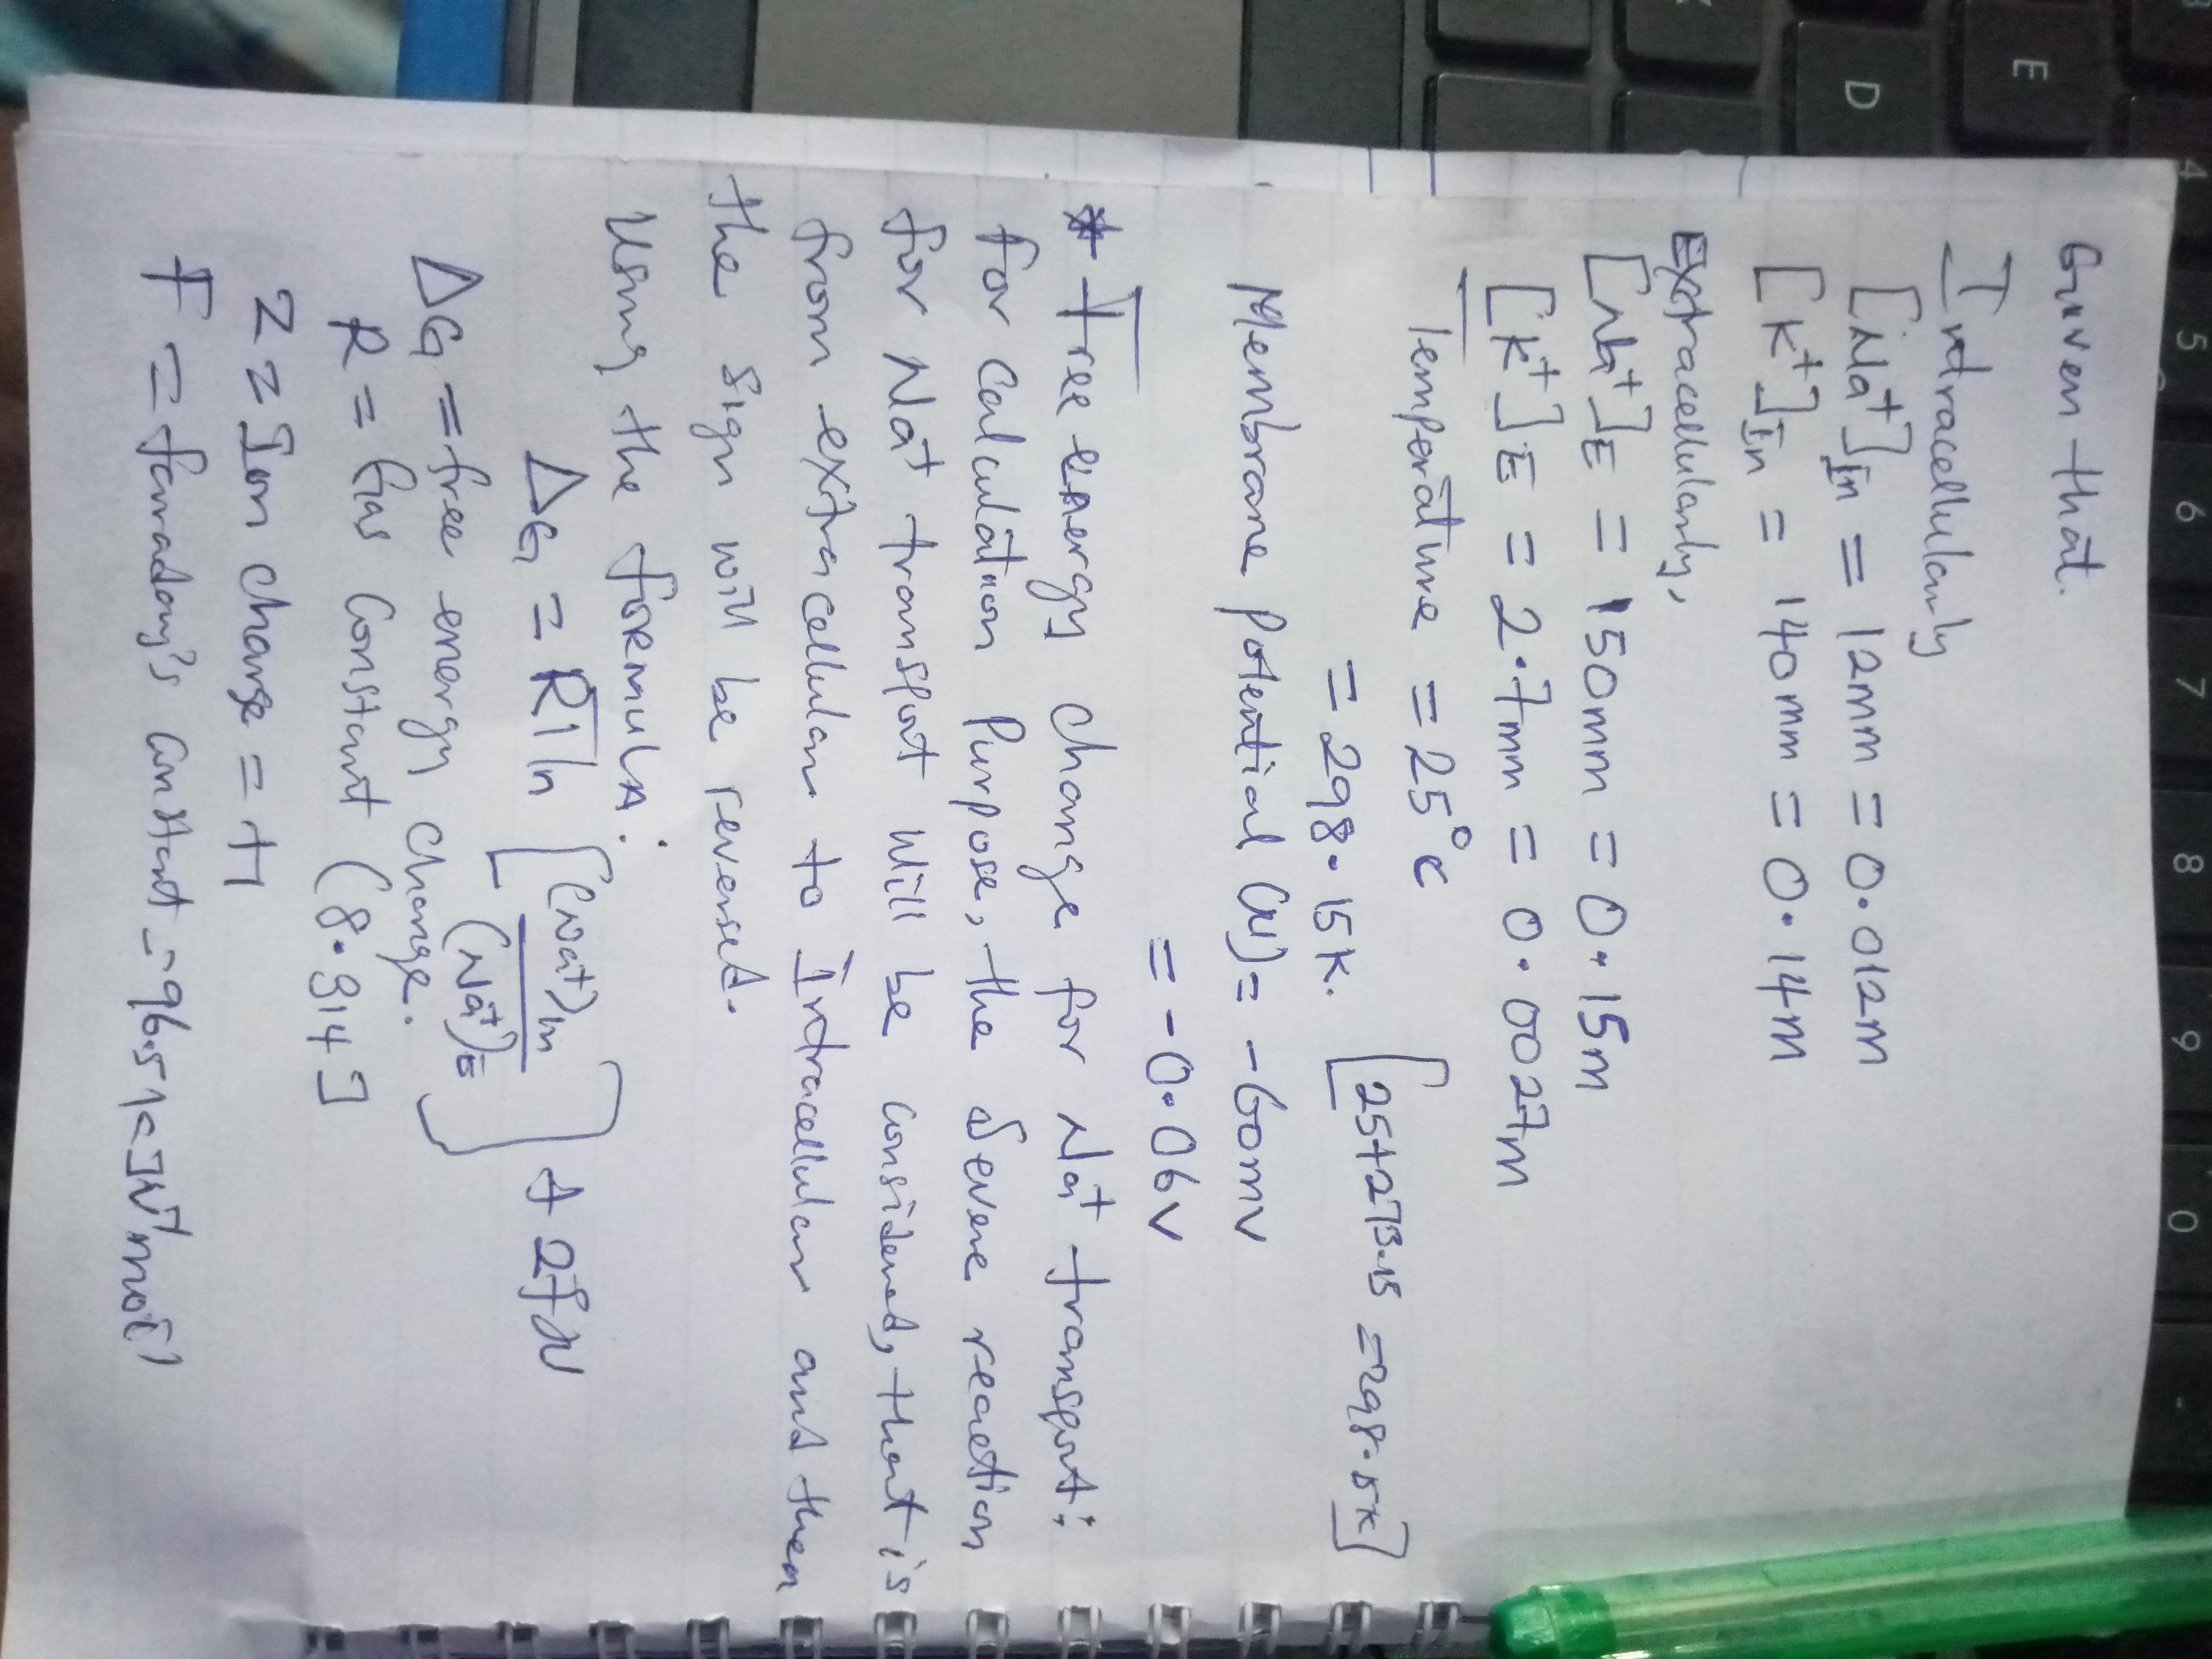 Given that.
Intracellularly
[Na⁺]In = 12mm = 0.012m
[K⁺]In = 140mm = 0.14m
Extracellularly,
[Na⁺]E = 150mm = 0.15m
[K⁺]E = 2.7mm = 0.0027m
Temperature = 25°C
= 298.15K. [25+273.15 = 298.15K]
Membrane potential (V) = -60mV
= -0.06V
* Free energy change for Na⁺ transport:
for calculation Purpose, the severe reaction
for Na⁺ transport will be considered, that is
from extracellular to Intracellular and then
the sign will be reversed.
Using the FORMULA:
ΔG = RT ln [(Na⁺)in / (Na⁺)E] + ZFV
ΔG = free energy change.
R = Gas Constant (8.314J
Z = Ion change = +1
F = faraday's constant = 96.5KJV⁻¹mol⁻¹
E
D
4
5
6
7
8
9
0
-